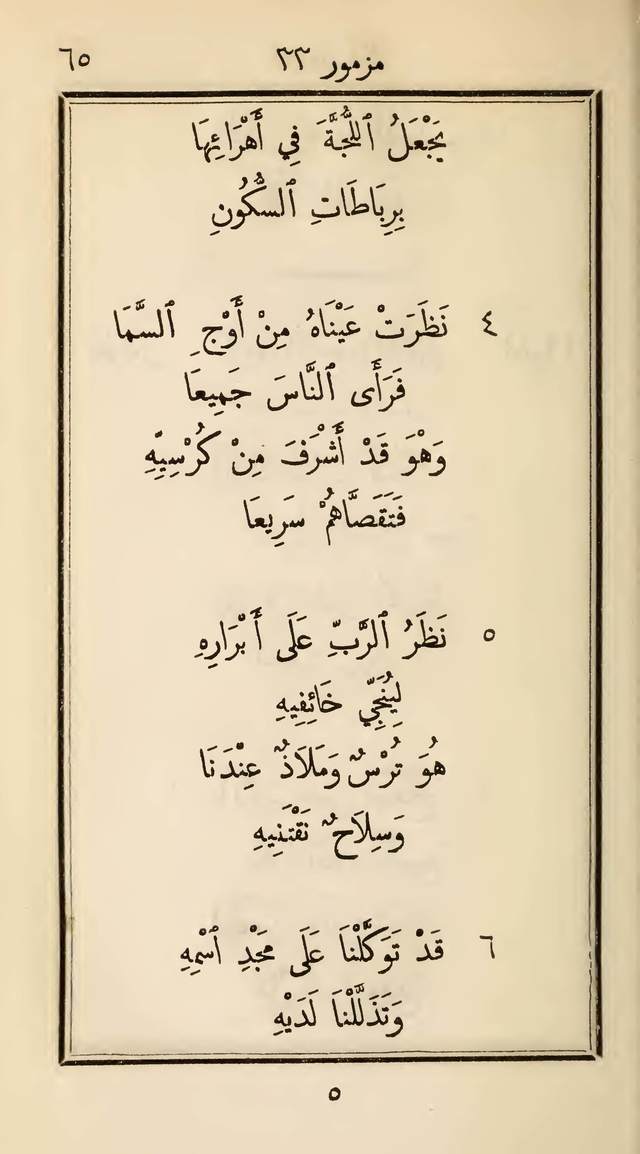 مزمور ٣٣ ٦٥
يَجْعَلُ ٱللُّجَّةَ فِي أَهْرَائِهَا
بِرِبَاطَاتِ ٱلسُّكُونِ
٤ نَظَرَتْ عَيْنَاهُ مِنْ أَوْجِ ٱلسَّمَا
فَرَأَى ٱلنَّاسَ جَمِيعَا
وَهْوَ قَدْ أَشْرَفَ مِنْ كُرْسِيِّهِ
فَتَقَصَّاهُمْ سَرِيعَا
٥ نَظَرُ ٱلرَّبِّ عَلَى أَبْرَارِهِ
لِيُنَجِّي خَائِفِيهِ
هُوَ تُرْسٌ وَمَلَاذٌ عِنْدَنَا
وَسِلَاحٌ نَقْتَنِيهِ
٦ قَدْ تَوَكَّلْنَا عَلَى مَجْدِ ٱسْمِهِ
وَتَذَلَّلْنَا لَدَيْهِ
٥